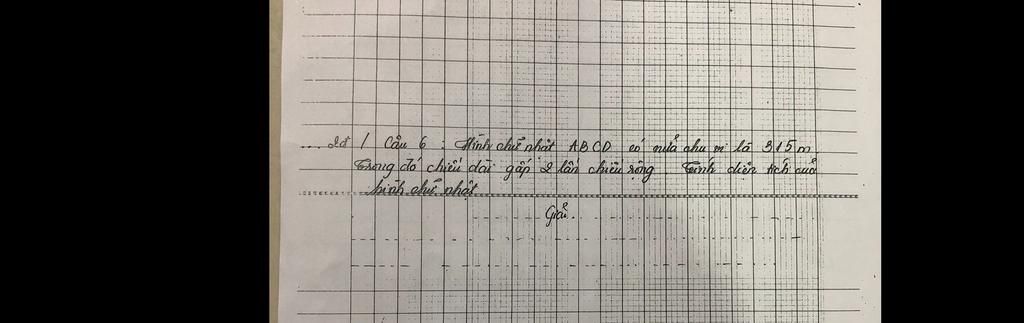 2đ / Câu 6 : Hình chữ nhật ABCD có nửa chu vi là 315m.
Trong đó chiều dài gấp 2 lần chiều rộng. Tính diện tích của
hình chữ nhật
Giải.